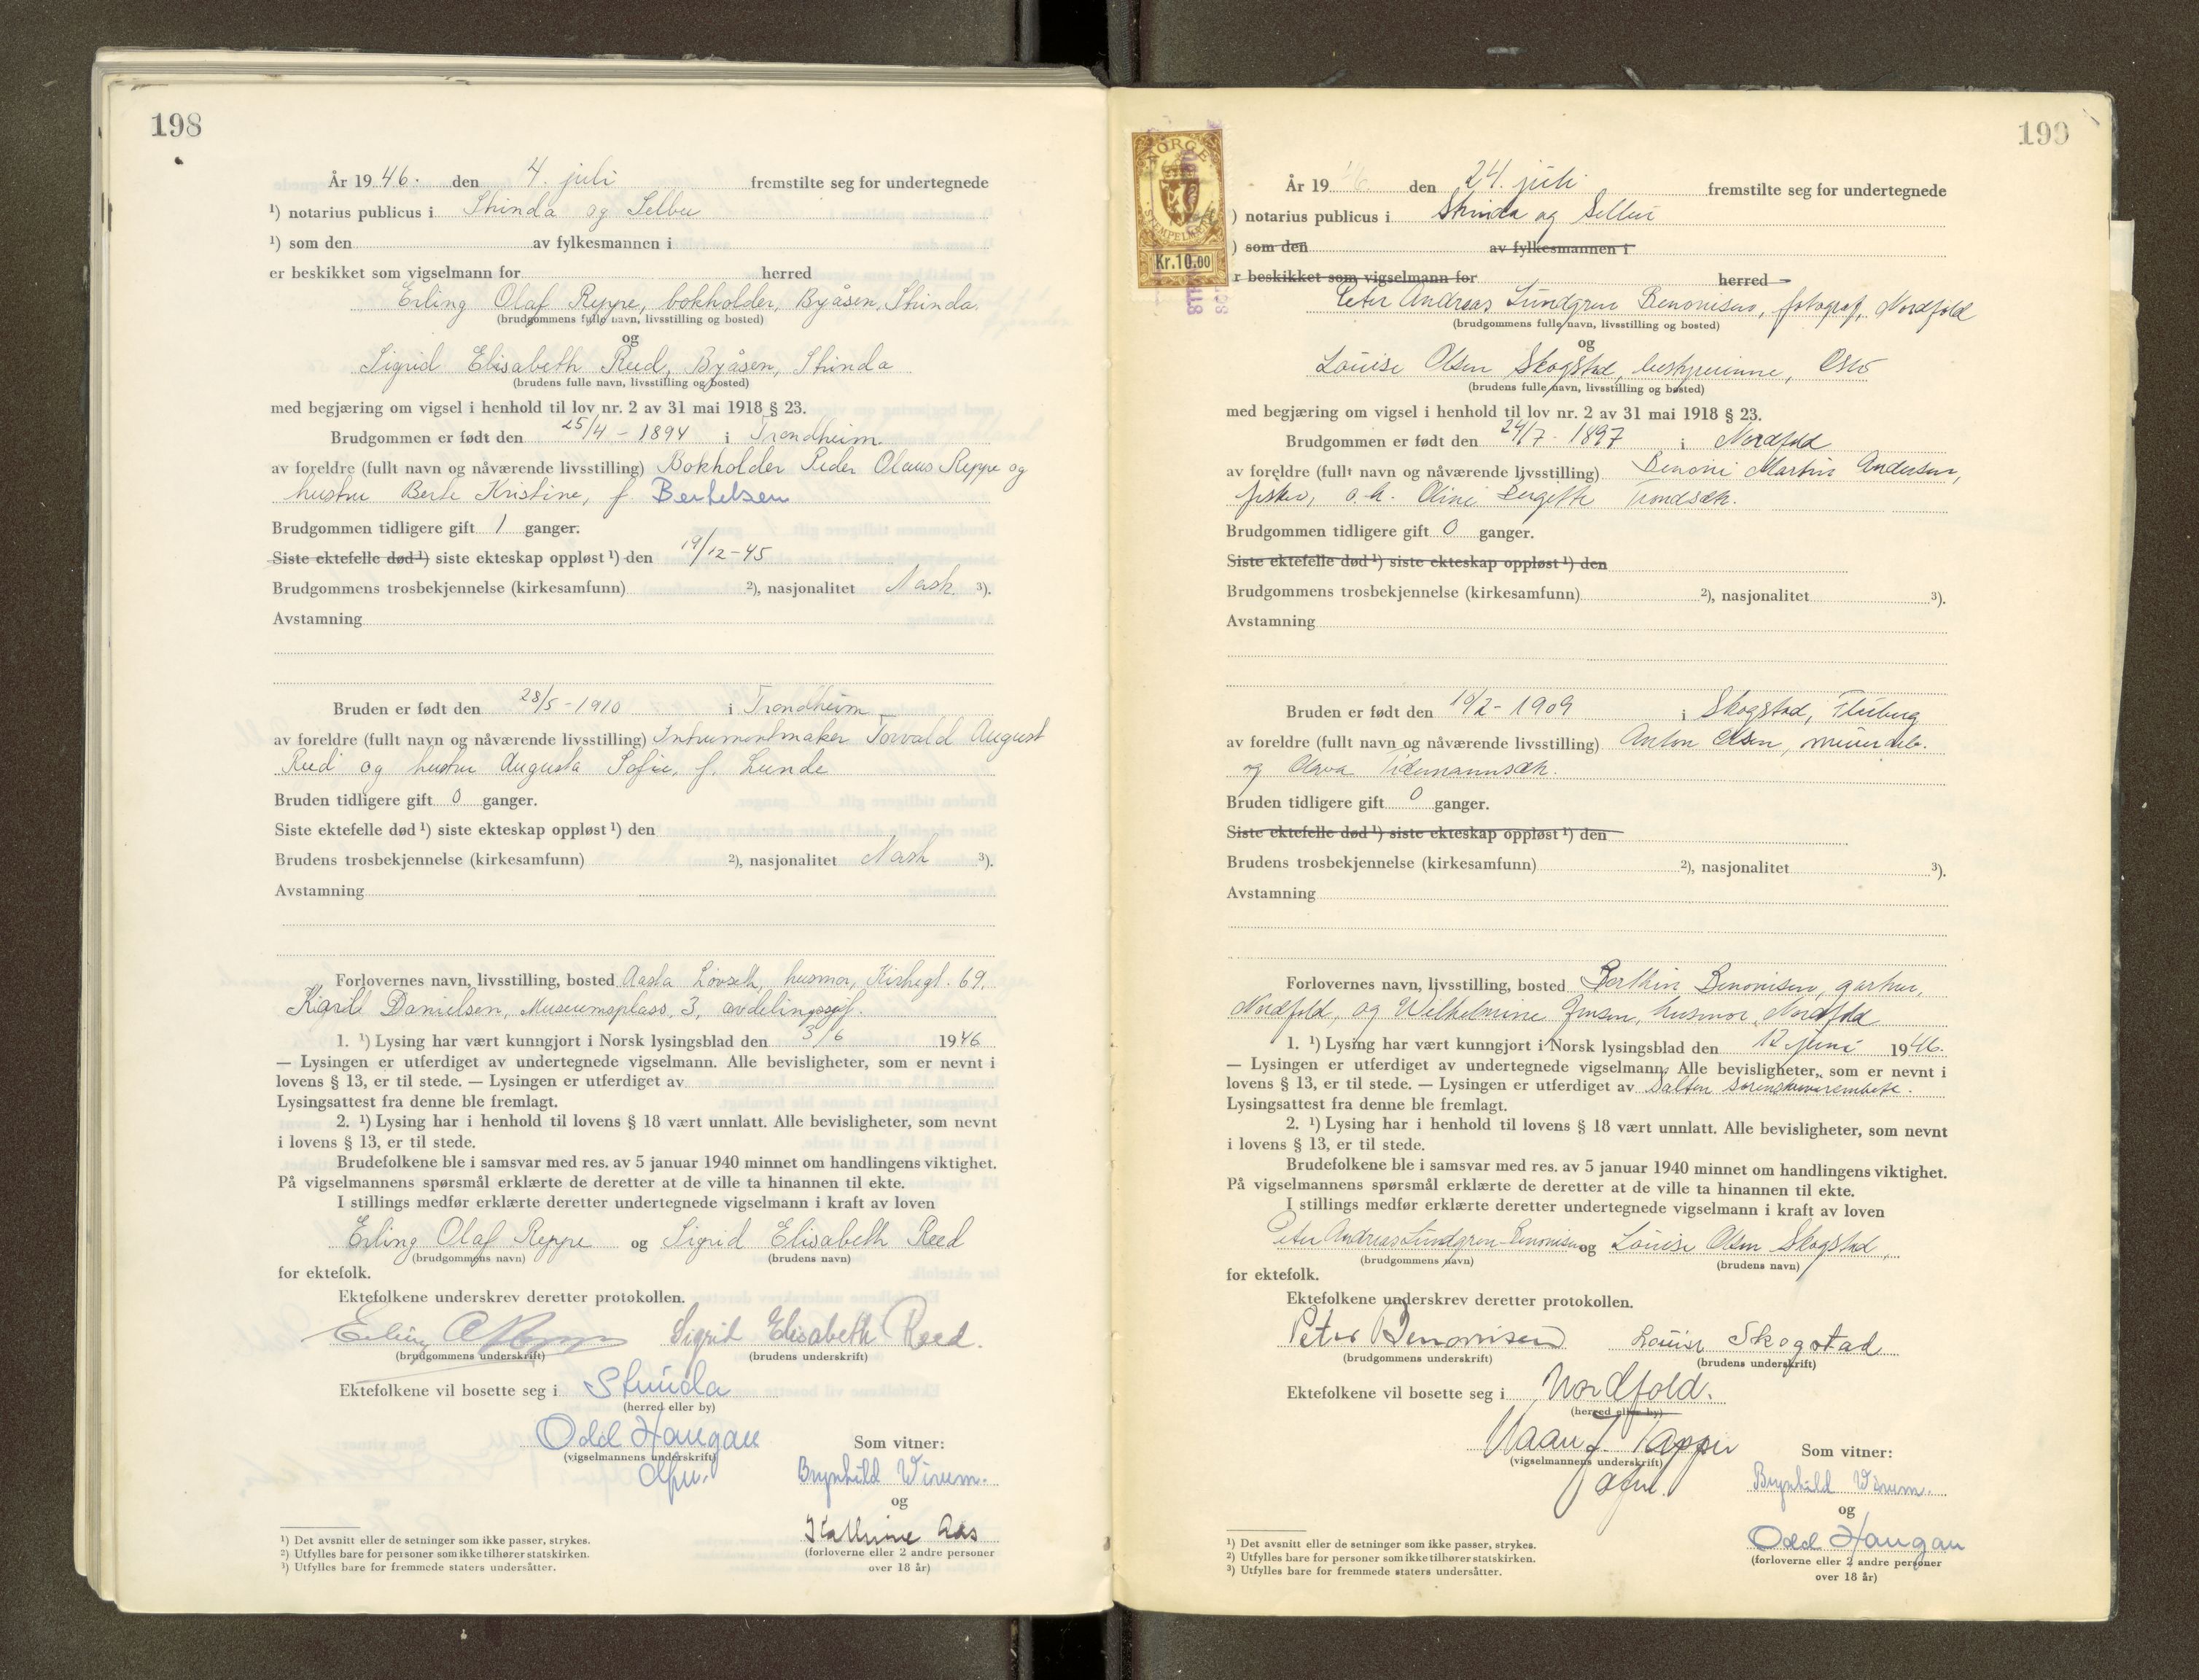 198
År 1946. den 4. juli fremstilte seg for undertegnede
¹) notarius publicus i Strinda og Selbu
¹) som den av fylkesmannen i
er beskikket som vigselmann for herred
Erling Olaf Reppe, bokholder, Byåsen, Strinda.
(brudgommens fulle navn, livsstilling og bosted)
og
Sigrid Elisabeth Reed, Byåsen, Strinda
(brudens fulle navn, livsstilling og bosted)
med begjæring om vigsel i henhold til lov nr. 2 av 31 mai 1918 § 23.
Brudgommen er født den 25/4 - 1894 i Trondheim
av foreldre (fullt navn og nåværende livsstilling) Bokholder Peder Olaus Reppe og
hustru Berte Kristine, f. Bertelsen
Brudgommen tidligere gift 1 ganger.
Siste ektefelle død ¹) siste ekteskap oppløst ¹) den 19/12-45
Brudgommens trosbekjennelse (kirkesamfunn) ²), nasjonalitet Norsk ³).
Avstamning
Bruden er født den 28/5 - 1910 i Trondheim
av foreldre (fullt navn og nåværende livsstilling) Intrumentmaker Torvald August
Reed og hustru Augusta Sofie, f. Lunde
Bruden tidligere gift 0 ganger.
Siste ektefelle død ¹) siste ekteskap oppløst ¹) den
Brudens trosbekjennelse (kirkesamfunn) ²), nasjonalitet Norsk ³).
Avstamning
Forlovernes navn, livsstilling, bosted Aasta Løvseth, husmor, Kirkegt. 69.
Kjarll Danielsen, Museumsplass, 3, avdelingssjef.
1. ¹) Lysing har vært kunngjort i Norsk lysingsblad den 3/6 1946
— Lysingen er utferdiget av undertegnede vigselmann. Alle bevisligheter, som er nevnt i
lovens § 13, er til stede. — Lysingen er utferdiget av
Lysingsattest fra denne ble fremlagt.
2. ¹) Lysing har i henhold til lovens § 18 vært unnlatt. Alle bevisligheter, som nevnt
i lovens § 13, er til stede.
Brudefolkene ble i samsvar med res. av 5 januar 1940 minnet om handlingens viktighet.
På vigselmannens spørsmål erklærte de deretter at de ville ta hinannen til ekte.
I stillings medfør erklærte deretter undertegnede vigselmann i kraft av loven
Erling Olaf Reppe og Sigrid Elisabeth Reed
(brudgommens navn) (brudens navn)
for ektefolk.
Ektefolkene underskrev deretter protokollen.
Erling O Reppe Sigrid Elisabeth Reed.
(brudgommens underskrift) (brudens underskrift)
Ektefolkene vil bosette seg i Strinda
(herred eller by)
Odd Haugan
(vigselmannens underskrift)
Som vitner:
Brynhild Wirum.
og
Kathrine Aas
(forloverne eller 2 andre personer
over 18 år)
¹) Det avsnitt eller de setninger som ikke passer, strykes.
²) Utfylles bare for personer som ikke tilhører statskirken.
³) Utfylles bare for fremmede staters undersåtter.
199
NORGE
STEMPELMERKE
Kr.10.00
År 1946. den 24. juli fremstilte seg for undertegnede
) notarius publicus i Strinda og Selbu
) som den av fylkesmannen i
r beskikket som vigselmann for herred
Peter Andreas Lundgren Benonisen, fotograf, Nordfold
(brudgommens fulle navn, livsstilling og bosted)
og
Louise Olsen Skogstad, bestyrerinne, Oslo
(brudens fulle navn, livsstilling og bosted)
med begjæring om vigsel i henhold til lov nr. 2 av 31 mai 1918 § 23.
Brudgommen er født den 24/7 - 1897 i Nordfold
av foreldre (fullt navn og nåværende livsstilling) Benoni Martin Andersen,
fisker, o. h. Oline Bergitte Trondsdtr.
Brudgommen tidligere gift 0 ganger.
Siste ektefelle død ¹) siste ekteskap oppløst ¹) den
Brudgommens trosbekjennelse (kirkesamfunn) ²), nasjonalitet ³).
Avstamning
Bruden er født den 19/2 - 1909 i Skogstad, Fluberg
av foreldre (fullt navn og nåværende livsstilling) Anton Olsen, murerarb.
og Olava Tidemannsdtr.
Bruden tidligere gift 0 ganger.
Siste ektefelle død ¹) siste ekteskap oppløst ¹) den
Brudens trosbekjennelse (kirkesamfunn) ²), nasjonalitet ³).
Avstamning
Forlovernes navn, livsstilling, bosted Benonisen, gartner,
Nordfold, og Wilhelmine Jensen, husmor, Nordfold
1. ¹) Lysing har vært kunngjort i Norsk lysingsblad den 12 juni 1946.
— Lysingen er utferdiget av undertegnede vigselmann. Alle bevisligheter, som er nevnt i
lovens § 13, er til stede. — Lysingen er utferdiget av Salten sorenskriverembete.
Lysingsattest fra denne ble fremlagt.
2. ¹) Lysing har i henhold til lovens § 18 vært unnlatt. Alle bevisligheter, som nevnt
i lovens § 13, er til stede.
Brudefolkene ble i samsvar med res. av 5 januar 1940 minnet om handlingens viktighet.
På vigselmannens spørsmål erklærte de deretter at de ville ta hinannen til ekte.
I stillings medfør erklærte deretter undertegnede vigselmann i kraft av loven
Peter Andreas Lundgren-Benonisen og Louise Olsen Skogstad,
(brudgommens navn) (brudens navn)
for ektefolk.
Ektefolkene underskrev deretter protokollen.
Peter Benonisen Louise Skogstad
(brudgommens underskrift) (brudens underskrift)
Ektefolkene vil bosette seg i Nordfold.
(herred eller by)
(vigselmannens underskrift)
Som vitner:
Brynhild Wirum.
og
Odd Haugan
(forloverne eller 2 andre personer
over 18 år)
¹) Det avsnitt eller de setninger som ikke passer, strykes.
²) Utfylles bare for personer som ikke tilhører statskirken.
³) Utfylles bare for fremmede staters undersåtter.